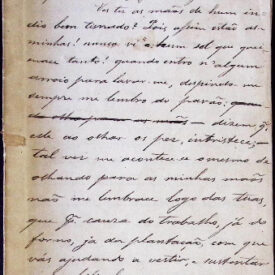 Vistes as mãos de hum in-
dio bem tisnado? Pois assim estão as
minhas! nunca vi a hum sol que quei-
masse tanto! quando entro n'algum
arroio para lavar-me, dispindo-me
sempre me lembro do pavão:
— dizem, q.
elle ao olhar os pés, intristece;
tal ver me acontece o mesmo de
olhando para as minhas mãos
não me lembrase logo das tuas,
que p. cauza do trabalho, já do
forno, já da plantação, com que
vás ajudando a vestir, e sustentar